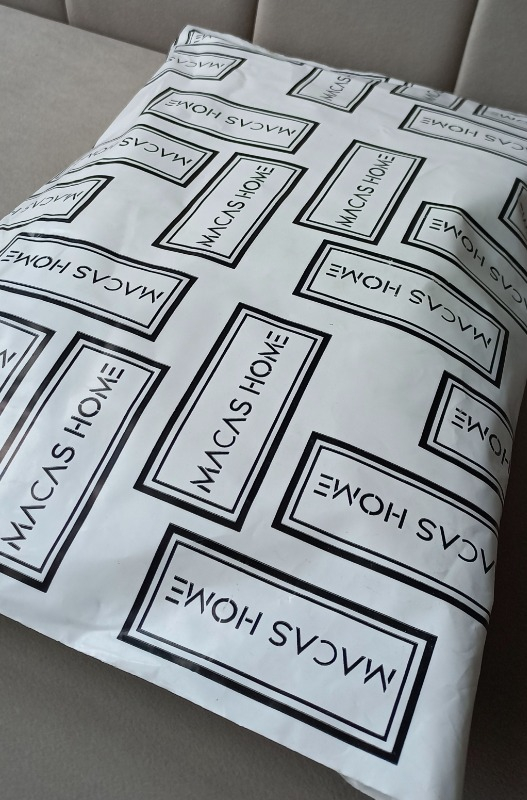 MACAS HOME
MACAS HOME
MACAS HOME
MACAS HOME
MACAS HOME
MACAS HOME
MACAS HOME
MACAS HOME
MACAS HOME
MACAS HOME
MACAS HOME
MACAS HOME
MACAS HOME